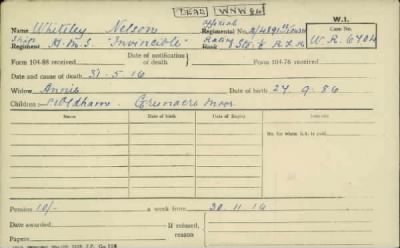 DEAD WNW 84
Name Whiteley Nelson Official W.1.
Ship Regiment H.M.S. "Invincible" Regimental No. Rating Rank Case No.
W.R. 6704
Form 104-88 received Date of notification of death Form 104-76 received
Date and cause of death 31.5.16
Widow Annie Date of birth 27.9.86
Children: Oldham.
Name Date of Birth Date of Expiry Intervals
No. for whom S.A. is paid
Pension 10/- a week from 30.11.16
Date awarded If refused, reason
Papers